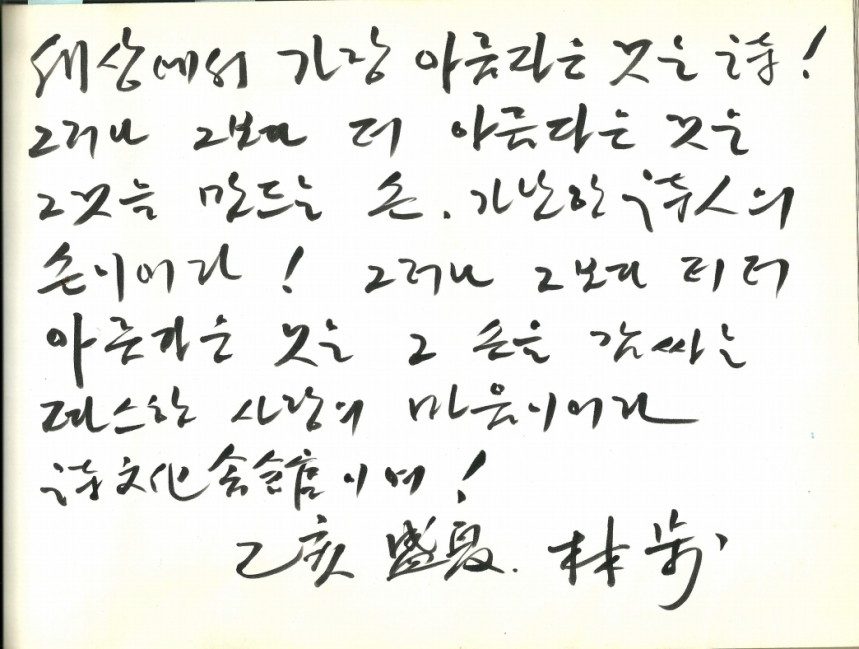 세상에서 가장 아름다운 것은 詩!
그러나 그보다 더 아름다운 것은
그것을 만드는 손. 가난한 詩人의
손이어라! 그러나 그보다 더더
아름다운 것은 그 손을 감싸는
따스한 사랑의 마음이어라
詩文化会館이여!
乙亥 盛夏. 林步